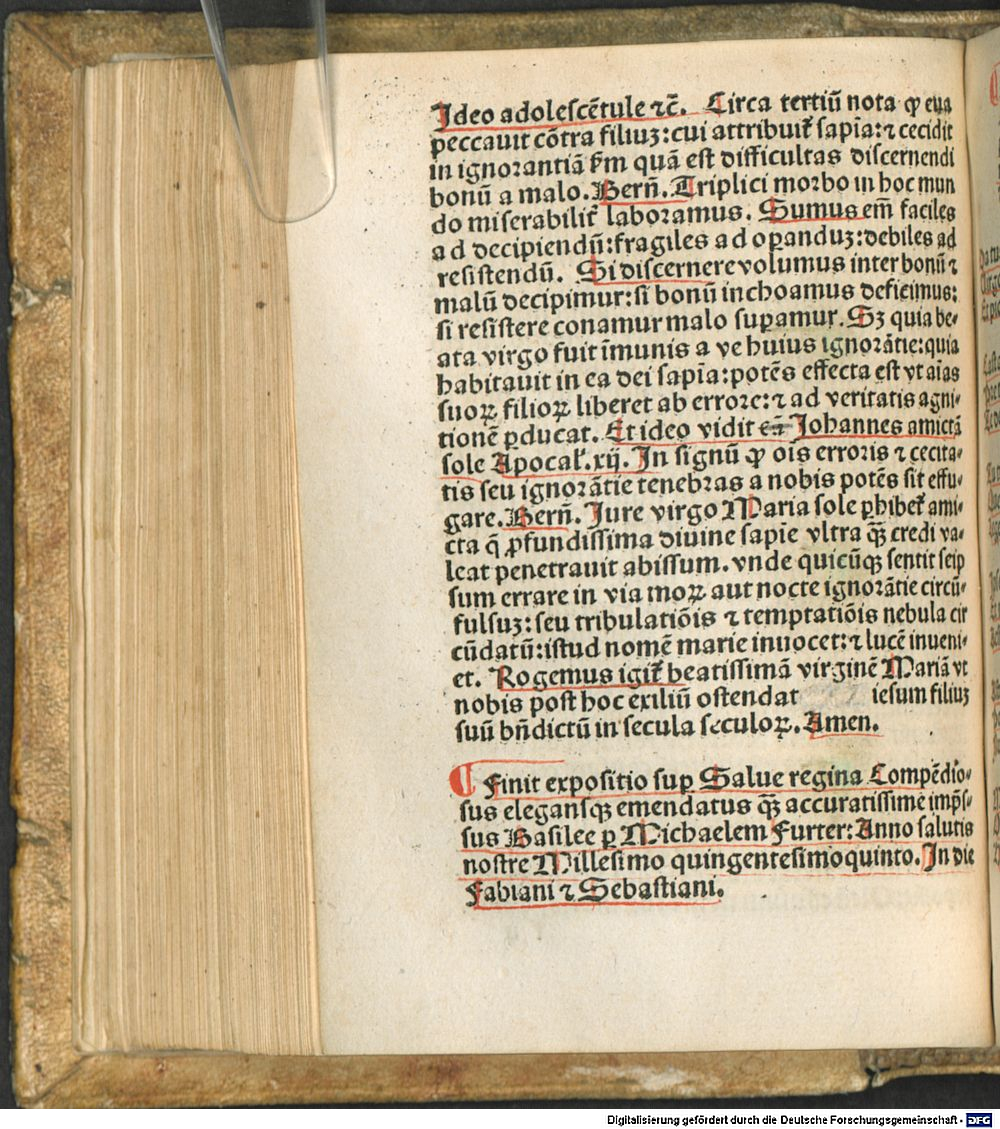 Ideo adolescētule ⁊c̄. Circa tertiū nota ꝙ eua
peccauit cōtra filiuꝫ:cui attribuiť sapīa:⁊ cecidit
in ignorantiā ẜm quā est difficultas discernendi
bonū a malo. Berñ. Triplici morbo in hoc mun
do miserabiliť laboramus. Sumus em̄ faciles
ad decipiendū:fragiles ad oꝑanduꝫ:debiles ad
resistendū. Si discernere volumus inter bonū ⁊
malū decipimur:si bonū inchoamus deficimus:
si resistere conamur malo suꝑamur. Sꝫ quia be⸗
ata virgo fuit īmunis a ve huius ignorātie:quia
habitauit in ea dei sapīa:potēs effecta est vt aīas
suoꝝ filioꝝ liberet ab errore:⁊ ad veritatis agni⸗
tionē ꝑducat. Et ideo vidit eā Johannes amictā
sole Apocaľ.xij. In signū ꝙ oīs erroris ⁊ cecita⸗
tis seu ignorātie tenebras a nobis potēs sit effu⸗
gare. Berñ. Jure virgo Maria sole ꝑhibeť ami⸗
cta q̄ ꝓfundissima diuine sapīe vltra qꝫ̄ credi va⸗
leat penetrauit abissum. vnde quicūqꝫ sentit seip
sum errare in via moꝝ aut nocte ignorātie circū⸗
fulsuꝫ:seu tribulatiōis ⁊ temptatiōis nebula cir
cūdatū:istud nomē marie inuocet:⁊ lucē inueni⸗
et. Rogemus igiť beatissimā virginē Mariā vt
nobis post hoc exiliū ostendat iesum filiuꝫ
suū bn̄dictū in secula seculoꝝ. Amen.
¶ Finit expositio suꝑ Salue regina Compēdio⸗
sus elegansqꝫ emendatus qꝫ̄ accuratissime imp̄s⸗
sus Basilee ꝑ Michaelem Furter: Anno salutis
nostre Millesimo quingentesimoquinto. In die
Fabiani ⁊ Sebastiani.
Digitalisierung gefördert durch die Deutsche Forschungsgemeinschaft - DFG